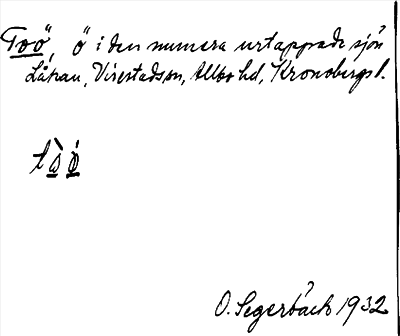 Toö, ö i den numera urtappade sjön
Låkan, Virestads sn, Allbo hd, Kronobergs l.
O. Segerbäck 1932